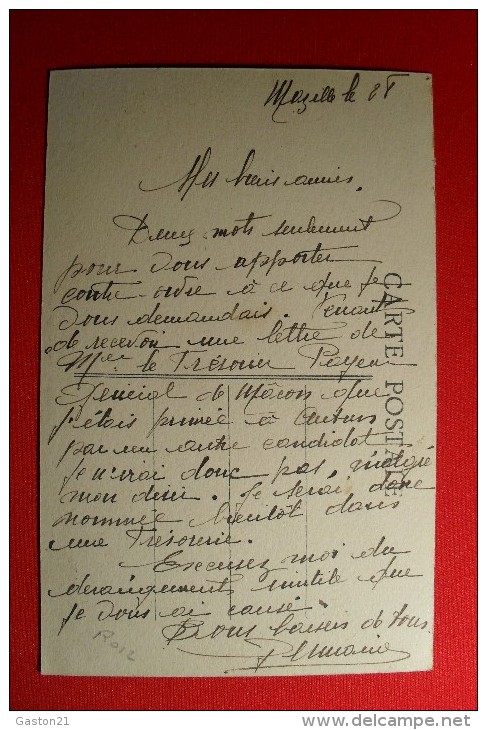 Mazille le 28
Mes biens amies.
Deux mots seulement
pour vous apporter
contre ordre à ce que je
vous demandais. Venant
de recevoir une lettre de
Mr le Trésorier Payeur
Général de Mâcon que
j'étais primée à Autun
par un autre candidat
je n'irai donc pas, malgré
mon désir. Je serai donc
nommée bientôt dans
une Trésorerie.
Excusez moi du
dérangement inutile que
je vous ai causé.
Bons baisers de tous
CARTE POSTALE
R012
Gaston21